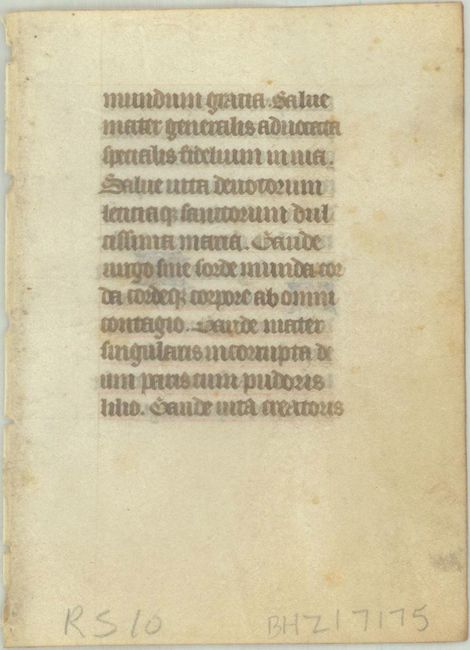 mundum gratia. Salue
mater generalis aduocata
specialis fidelium
Salue uita deuotorum
leticiaq̨ sanctorum dul
cissima maria. Gaude
uirgo sine sorde munda cor
da cordeq̨ corpore ab omni
contagio. Gaude mater
singularis incorrupta de
um paris cum pudoris
lilio. Gaude uita creatoris
RS 10
BHZ 17175